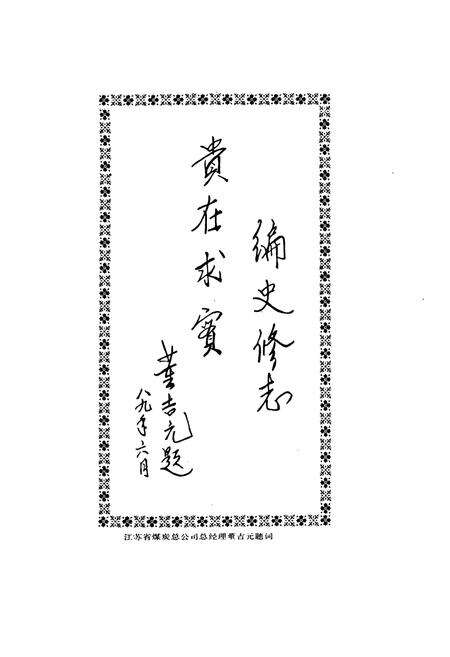 编史修志
貴在求實
董吉元题
八九年六月
江苏省煤炭总公司总经理董吉元题词